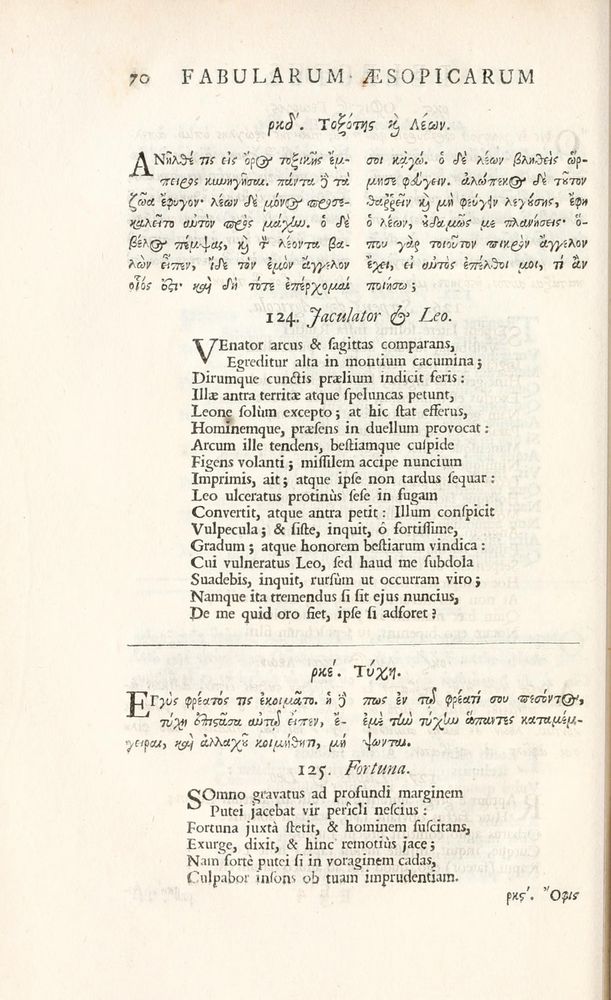 70 FABULARUM ÆSOPICARUM
ρκδ΄. Τοξότης ϗ Λέων.
ΑΝῆλθέ τις εἰς ὄρος τοξικῆς ἔμ-
πειρος κυνηγῆσαι. πάντα ἢ τὰ
ζῶα ἔφυγον· λέων δὲ μόνος προσε-
καλεῖτο αὐτὸν πρὸς μάχην. ὁ δὲ
βέλος πέμψας, ϗ τ λέοντα βα-
λὼν εἶπεν, ἴδε τὸν ἐμὸν ἄγγελον
οἷός ὅξι· ϗ δὴ τότε ἐπέρχομαί
σοι κἀγώ. ὁ δὲ λέων βληθεὶς ὥρ-
μησε φεύγειν. ἀλώπεκος δὲ τοῦτον
θαῤῥεῖν ϗ μὴ φεύγειν λεγούσης, ἔφη
ὁ λέων, οὐδαμῶς με πλανήσεις· ὅ-
που γὰρ τοιοῦτον πικρὸν ἄγγελον
ἔχει, εἰ αὐτὸς ἐπέλθοι μοι, τί ἂν
ποιήσω;
124. Jaculator & Leo.
VEnator arcus & ſagittas comparans,
Egreditur alta in montium cacumina;
Dirumque cunctis prælium indicit feris:
Illæ antra territæ atque ſpeluncas petunt,
Leone ſolùm excepto; at hic ſtat efferus,
Hominemque, præſens in duellum provocat:
Arcum ille tendens, beſtiamque cuſpide
Figens volanti; miſſilem accipe nuncium
Imprimis, ait; atque ipſe non tardus ſequar:
Leo ulceratus protinùs ſeſe in fugam
Convertit, atque antra petit: Illum conſpicit
Vulpecula; & ſiſte, inquit, ô fortiſſime,
Gradum; atque honorem beſtiarum vindica:
Cui vulneratus Leo, ſed haud me ſubdola
Suadebis, inquit, rurſùm ut occurram viro;
Namque ita tremendus ſi ſit ejus nuncius,
De me quid oro fiet, ipſe ſi adforet?
ρκέ. Τύχη.
ΕΓγὺς φρέατός τις ἐκοιμᾶτο. ἡ ἢ
τύχη ἐπιστᾶσα αὐτῷ εἶπεν, ἔ-
γειραι, ϗ ἀλλαχοῦ κοιμήθητι, μή
πως ἐν τῷ φρέατί σου πεσόντος,
ἐμὲ τὴν τύχην ἅπαντες καταμέμ-
ψωνται.
125. Fortuna.
SOmno gravatus ad profundi marginem
Putei jacebat vir pericli neſcius:
Fortuna juxtà ſtetit, & hominem ſuſcitans,
Exurge, dixit, & hinc remotiùs jace;
Nam fortè putei ſi in voraginem cadas,
Culpabor inſons ob tuam imprudentiam.
ρκϛ΄. Ὄφις